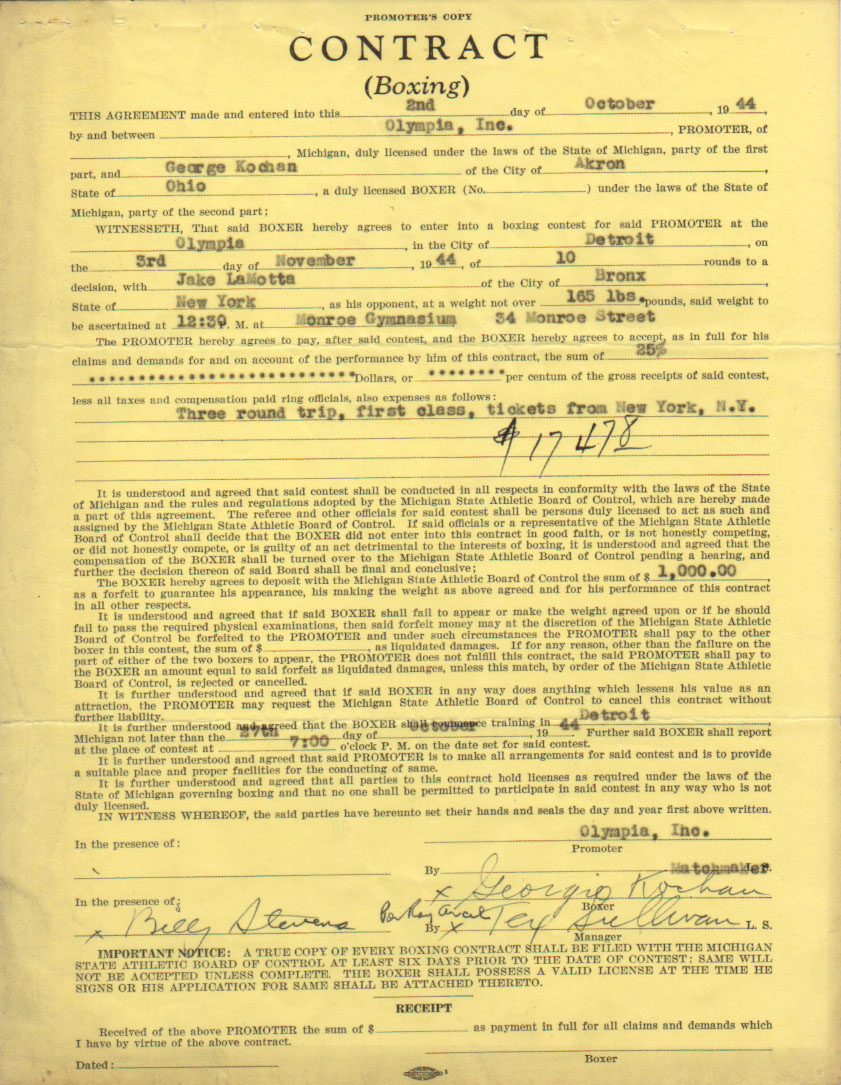 PROMOTER'S COPY
CONTRACT
(Boxing)
THIS AGREEMENT made and entered into this 2nd day of October, 1944,
by and between Olympia, Inc., PROMOTER, of
, Michigan, duly licensed under the laws of the State of Michigan, party of the first
part, and George Kochan of the City of Akron,
State of Ohio, a duly licensed BOXER (No. ) under the laws of the State of
Michigan, party of the second part;
WITNESSETH, That said BOXER hereby agrees to enter into a boxing contest for said PROMOTER at the
Olympia, in the City of Detroit, on
the 3rd day of November, 1944, of 10 rounds to a
decision, with Jake LaMotta of the City of Bronx,
State of New York, as his opponent, at a weight not over 165 lbs. pounds, said weight to
be ascertained at 12:30. M. at Monroe Gymnasium 34 Monroe Street
The PROMOTER hereby agrees to pay, after said contest, and the BOXER hereby agrees to accept, as in full for his
claims and demands for and on account of the performance by him of this contract, the sum of 25%
**************************** Dollars, or ******** per centum of the gross receipts of said contest,
less all taxes and compensation paid ring officials, also expenses as follows:
Three round trip, first class, tickets from New York, N.Y.
$17478
It is understood and agreed that said contest shall be conducted in all respects in conformity with the laws of the State
of Michigan and the rules and regulations adopted by the Michigan State Athletic Board of Control, which are hereby made
a part of this agreement. The referee and other officials for said contest shall be persons duly licensed to act as such and
assigned by the Michigan State Athletic Board of Control. If said officials or a representative of the Michigan State Athletic
Board of Control shall decide that the BOXER did not enter into this contract in good faith, or is not honestly competing,
or did not honestly compete, or is guilty of an act detrimental to the interests of boxing, it is understood and agreed that the
compensation of the BOXER shall be turned over to the Michigan State Athletic Board of Control pending a hearing, and
further the decision thereon of said Board shall be final and conclusive;
The BOXER hereby agrees to deposit with the Michigan State Athletic Board of Control the sum of $ 1,000.00,
as a forfeit to guarantee his appearance, his making the weight as above agreed and for his performance of this contract
in all other respects.
It is understood and agreed that if said BOXER shall fail to appear or make the weight agreed upon or if he should
fail to pass the required physical examinations, then said forfeit money may at the discretion of the Michigan State Athletic
Board of Control be forfeited to the PROMOTER and under such circumstances the PROMOTER shall pay to the other
boxer in this contest, the sum of $ , as liquidated damages. If for any reason, other than the failure on the
part of either of the two boxers to appear, the PROMOTER does not fulfill this contract, the said PROMOTER shall pay to
the BOXER an amount equal to said forfeit as liquidated damages, unless this match, by order of the Michigan State Athletic
Board of Control, is rejected or cancelled.
It is further understood and agreed that if said BOXER in any way does anything which lessens his value as an
attraction, the PROMOTER may request the Michigan State Athletic Board of Control to cancel this contract without
further liability.
It is further understood and agreed that the BOXER shall commence training in Detroit,
Michigan not later than the 27th day of October, 1944 Further said BOXER shall report
at the place of contest at 7:00 o'clock P. M. on the date set for said contest.
It is further understood and agreed that said PROMOTER is to make all arrangements for said contest and is to provide
a suitable place and proper facilities for the conducting of same.
It is further understood and agreed that all parties to this contract hold licenses as required under the laws of the
State of Michigan governing boxing and that no one shall be permitted to participate in said contest in any way who is not
duly licensed.
IN WITNESS WHEREOF, the said parties have hereunto set their hands and seals the day and year first above written.
Olympia, Inc.
In the presence of:
Promoter
By Matchmaker.
x Georgie Kochan
In the presence of:
Boxer
x Billy Stevens
By x Tex Sullivan L. S.
Manager
IMPORTANT NOTICE: A TRUE COPY OF EVERY BOXING CONTRACT SHALL BE FILED WITH THE MICHIGAN
STATE ATHLETIC BOARD OF CONTROL AT LEAST SIX DAYS PRIOR TO THE DATE OF CONTEST: SAME WILL
NOT BE ACCEPTED UNLESS COMPLETE. THE BOXER SHALL POSSESS A VALID LICENSE AT THE TIME HE
SIGNS OR HIS APPLICATION FOR SAME SHALL BE ATTACHED THERETO.
RECEIPT
Received of the above PROMOTER the sum of $ as payment in full for all claims and demands which
I have by virtue of the above contract.
Boxer
Dated: